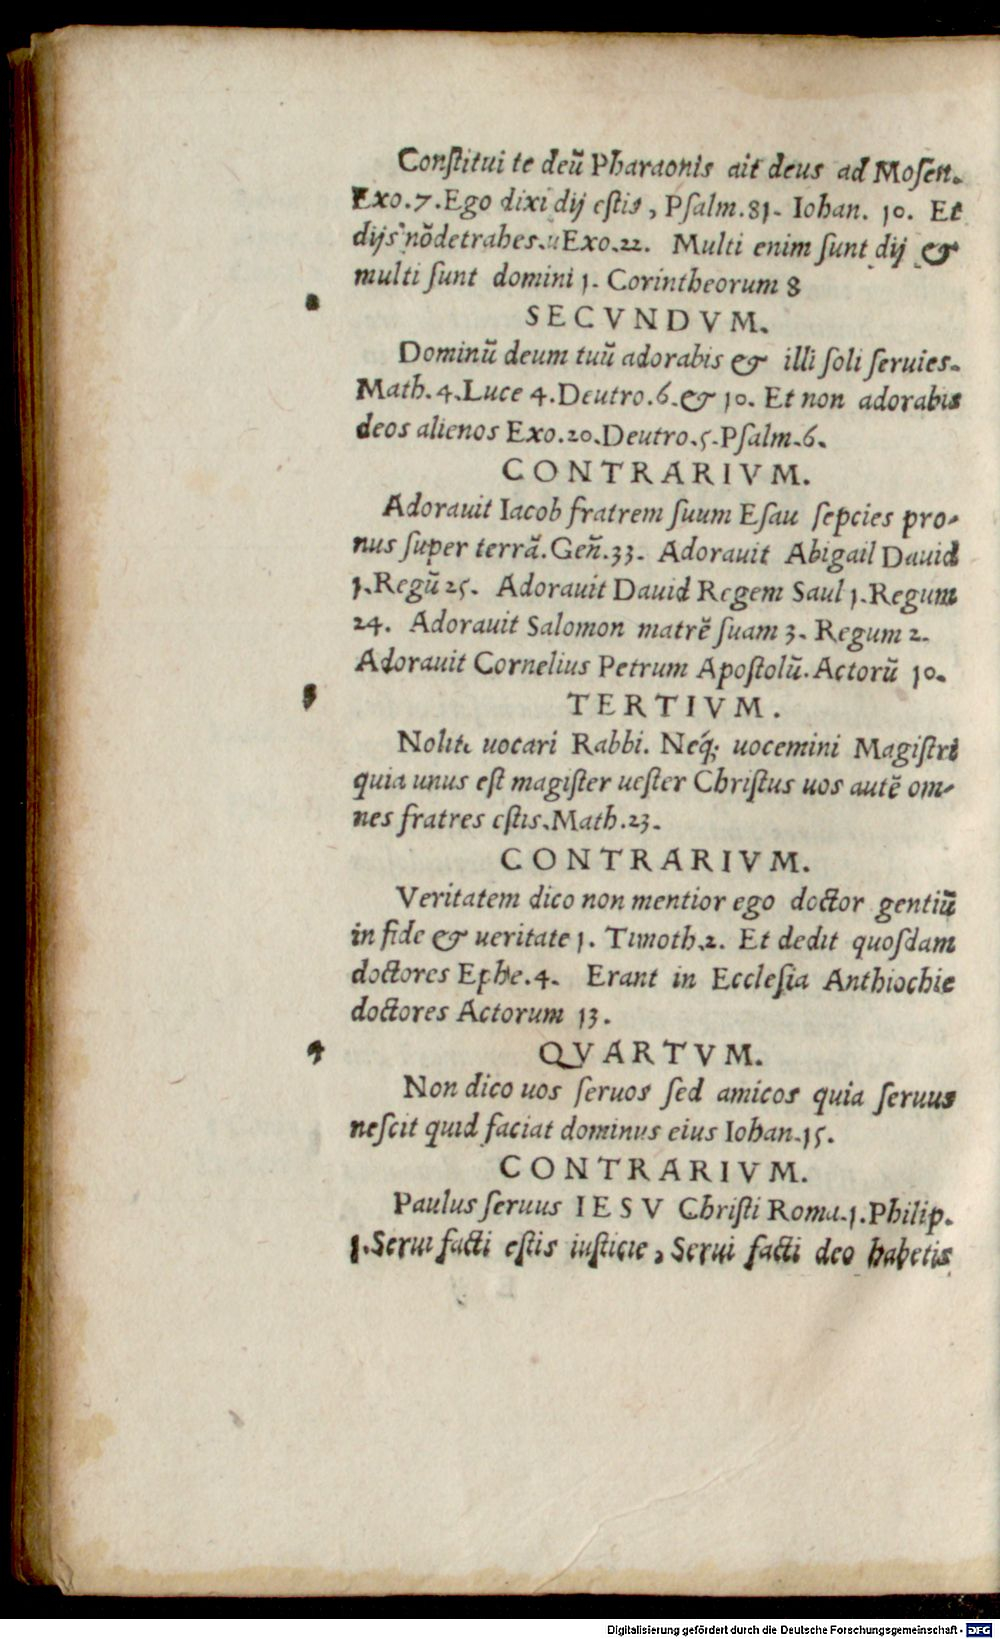 Conſtitui te deũ Pharaonis ait deus ad Moſen.
Exo.7.Ego dixi dij eſtis, Pſalm.81. Iohan. 10. Et
dijs nõdetrahes. Exo.22. Multi enim ſunt dij &
multi ſunt domini 1. Corintheorum 8
2
SECVNDVM.
Dominũ deum tuũ adorabis & illi ſoli ſeruies.
Math.4.Luce 4.Deutro.6.& 10. Et non adorabis
deos alienos Exo.20.Deutro.5.Pſalm.6.
CONTRARIVM.
Adorauit Iacob fratrem ſuum Eſau ſepcies pro-
nus ſuper terrã.Geñ.33. Adorauit Abigail Dauid
1.Regũ 25. Adorauit Dauid Regem Saul 1.Regum
24. Adorauit Salomon matrẽ ſuam 3. Regum 2.
Adorauit Cornelius Petrum Apoſtolũ.Actorũ 10.
3
TERTIVM.
Nolite uocari Rabbi. Neq́; uocemini Magiſtri
quia unus eſt magiſter ueſter Chriſtus uos autẽ om-
nes fratres eſtis.Math.23.
CONTRARIVM.
Veritatem dico non mentior ego doctor gentiũ
in fide & ueritate 1. Timoth.2. Et dedit quoſdam
doctores Ephe.4. Erant in Eccleſia Anthiochie
doctores Actorum 13.
4
QVARTVM.
Non dico uos ſeruos ſed amicos quia ſeruus
neſcit quid faciat dominus eius Iohan.15.
CONTRARIVM.
Paulus ſeruus IESV Chriſti Roma.1.Philip.
1.Serui facti eſtis iuſticie, Serui facti deo habetis
Digitalisierung gefördert durch die Deutsche Forschungsgemeinschaft - DFG